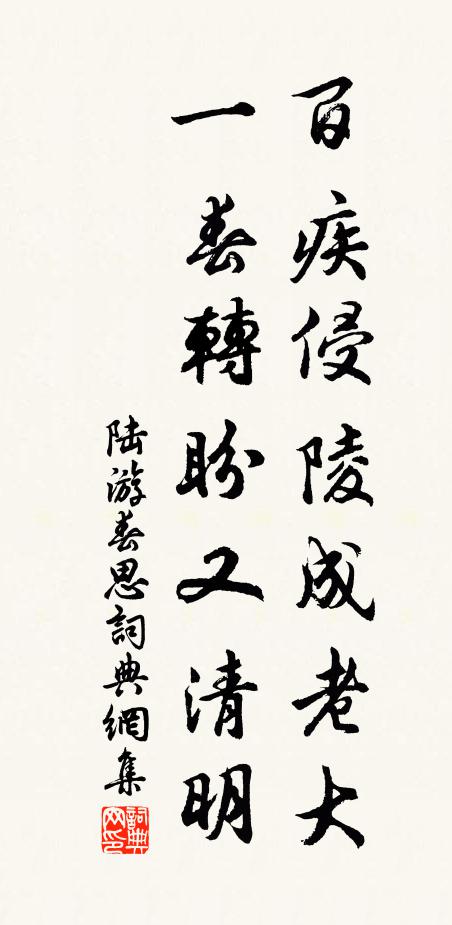 百疾侵陵成老大
一春轉盼又清明
陆游春思詞典網集
詞典
网印